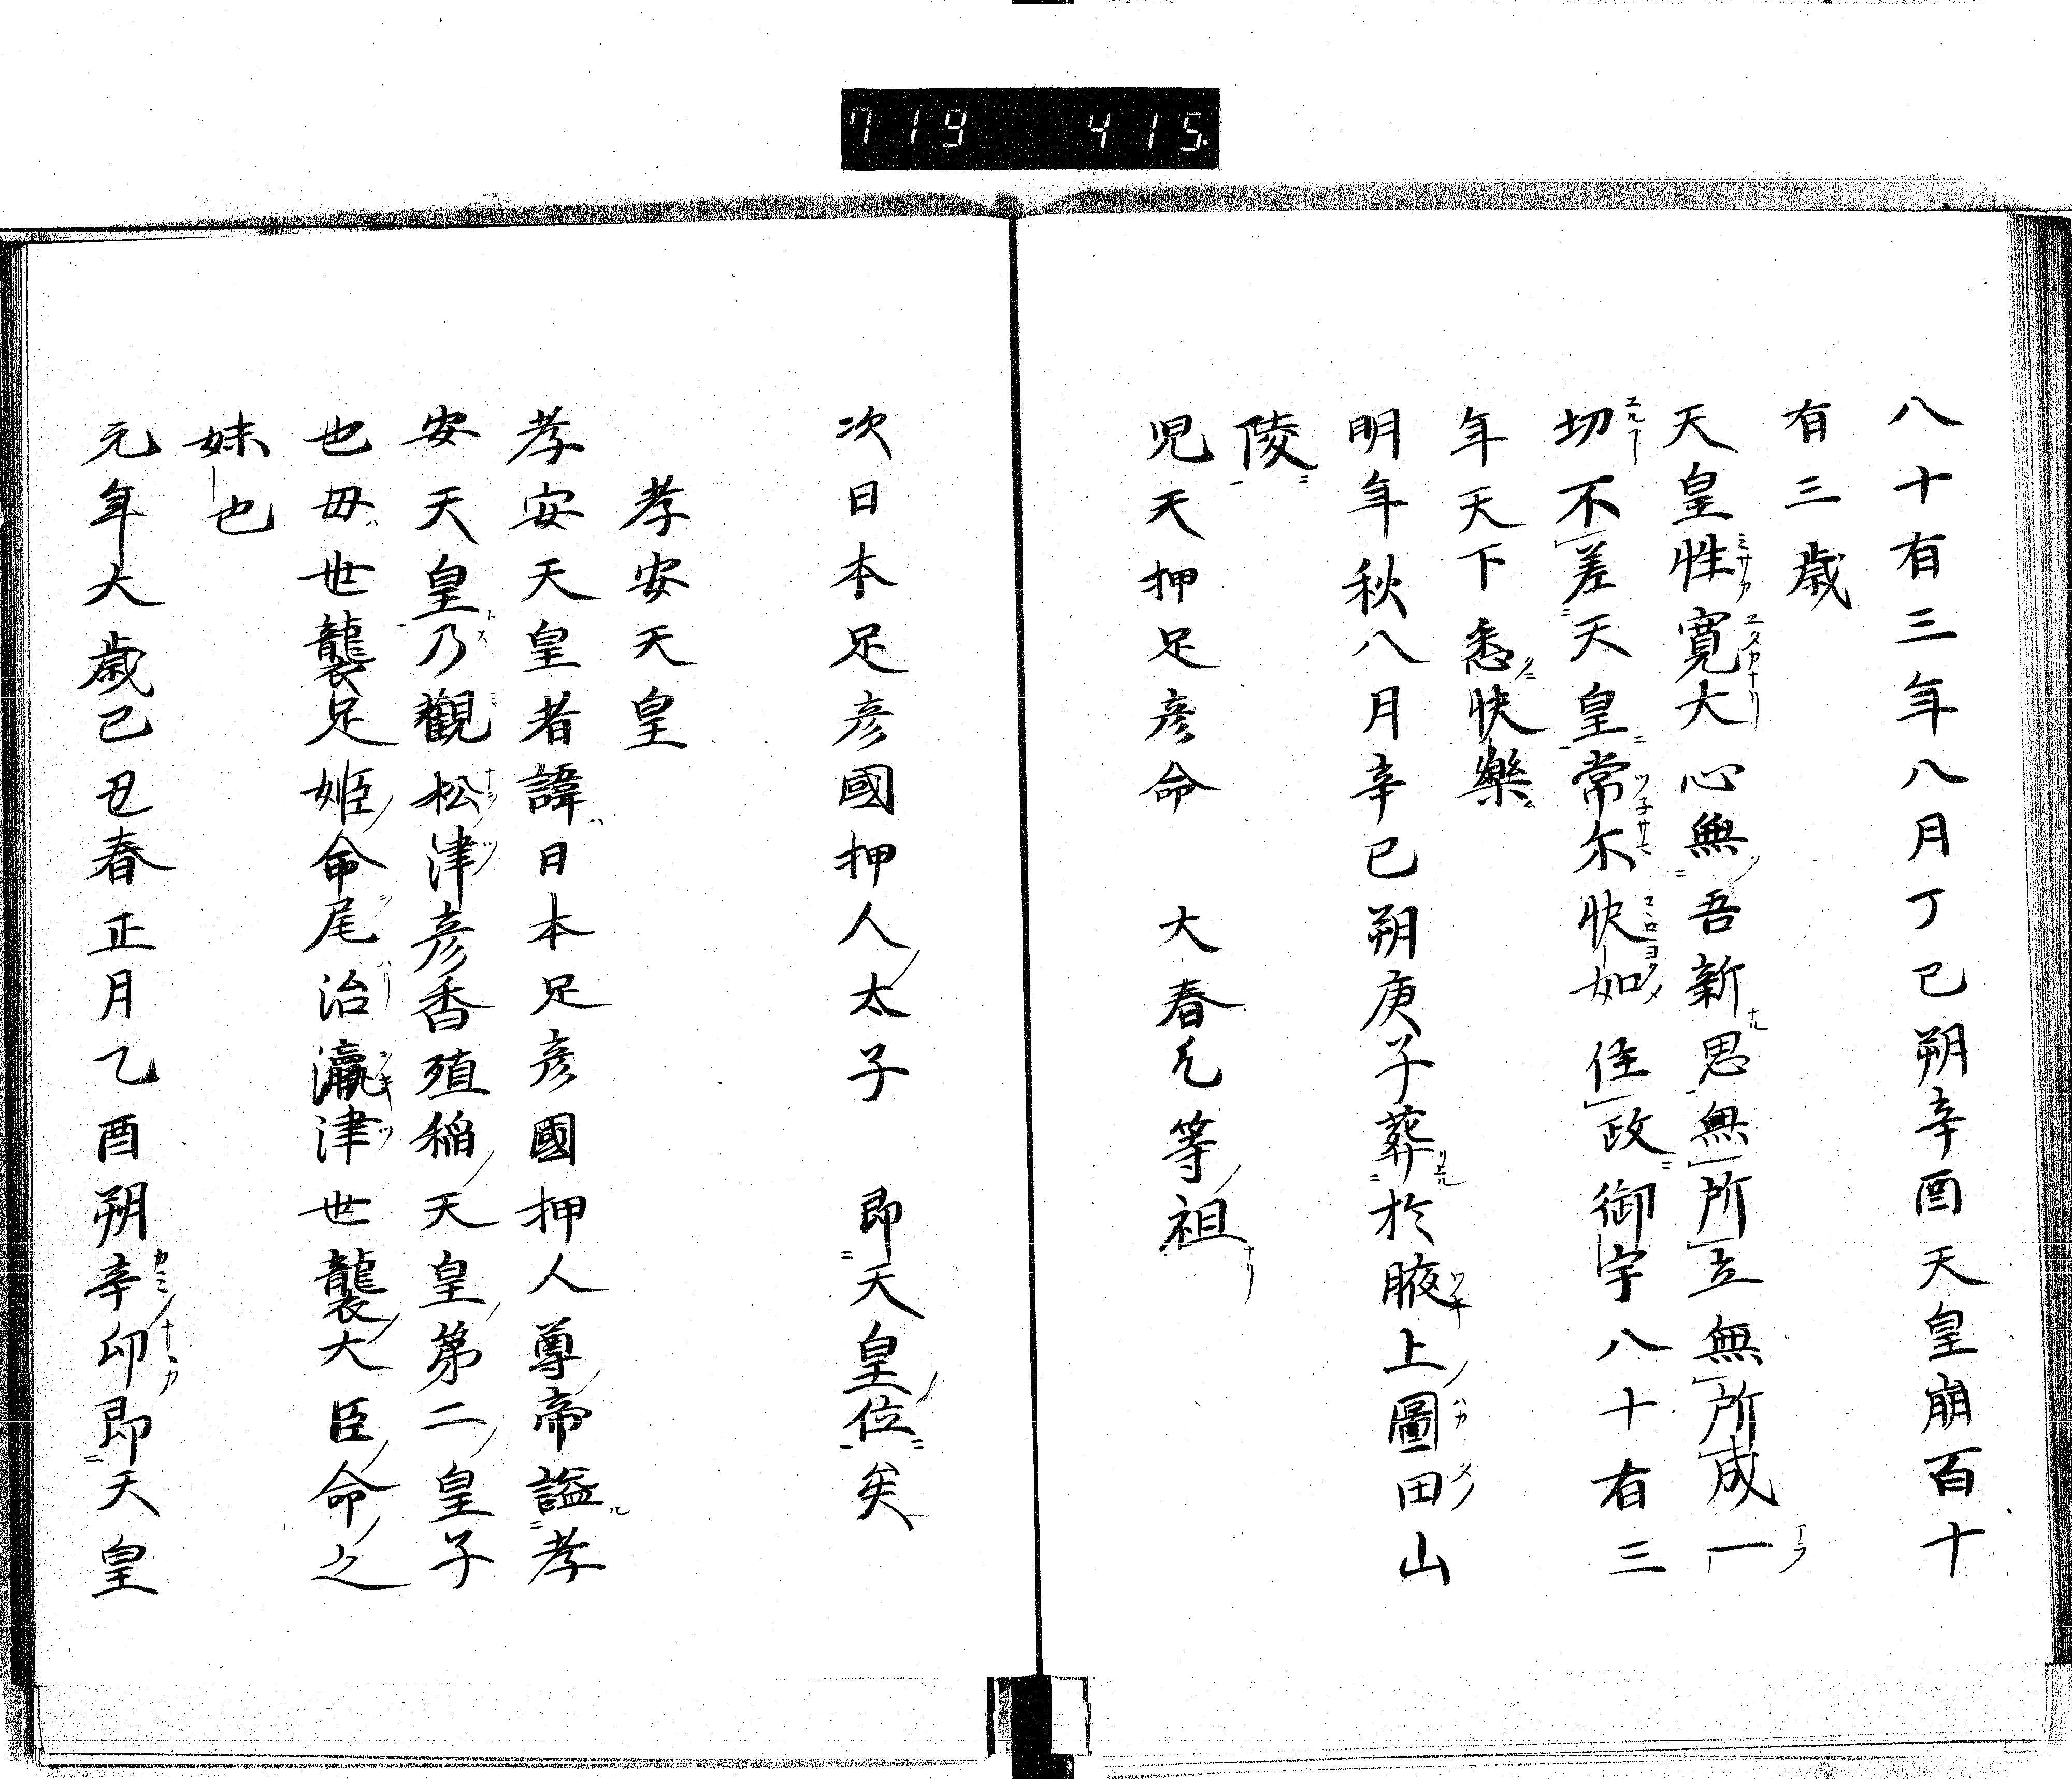 719 415.
八十有三年八月丁已朔辛酉天皇崩百十
有三歳
天皇性寛大心無吾新思無所立無所成一
切不差天皇常尓快如佳政御宇八十有三
年天下悉快樂
明年秋八月辛已朔庚子葬於腋上圖田山
陵
児天押足彦命 大春凡等祖
次日本足彦國押人太子 即天皇位矣
孝安天皇
孝安天皇者諱日本足彦國押人尊帝謚孝
安天皇乃觀松津彦香殖稲天皇第二皇子
也毋世襲足姫命尾治瀛津世襲大臣命之
妹也
元年大歳己丑春正月乙酉朔辛卯即天皇